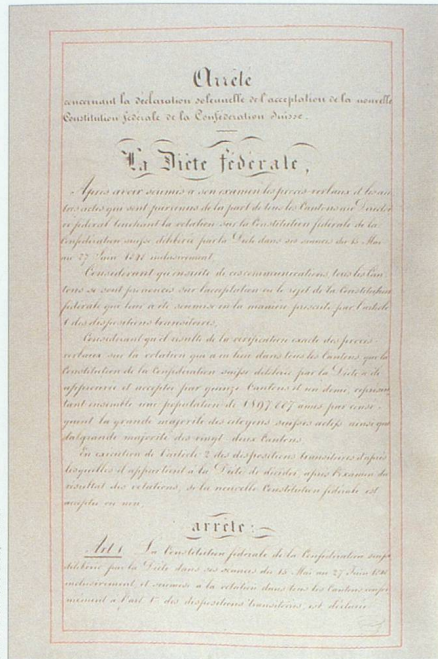 Arrêté
concernant la déclaration solennelle de l'acceptation de la nouvelle
Constitution fédérale de la Confédération Suisse.
La Diète fédérale,
Après avoir soumis à son examen les procès-verbaux et les au-
tres actes qui sont parvenus de la part de tous les Cantons au Directoi-
re fédéral touchant la votation sur la Constitution fédérale de la
Confédération suisse délibérée par la Diète dans ses séances du 15 Mai
au 27 Juin 1848 inclusivement,
Considérant qu'ensuite de ces communications, tous les Can-
tons se sont prononcés sur l'acceptation ou le rejet de la Constitution
fédérale qui leur a été soumise en la manière prescrite par l'article
1 des dispositions transitoires,
Considérant qu'il résulte de la vérification exacte des procès-
verbaux sur la votation qui a eu lieu dans tous les Cantons que la
Constitution de la Confédération suisse délibérée par la Diète a été
approuvée et acceptée par quinze Cantons et un demi, représen-
tant ensemble une population de 1'897'887 âmes par consé-
quent la grande majorité des citoyens suisses actifs ainsi que
la grande majorité des vingt-deux Cantons.
En exécution de l'article 2 des dispositions transitoires d'après
lesquelles il appartient à la Diète de décider, après l'examen du
résultat des votations, si la nouvelle Constitution fédérale est
acceptée ou non,
arrête:
Art 1. La Constitution fédérale de la Confédération suisse
délibérée par la Diète dans ses séances du 15 Mai au 27 Juin 1848
inclusivement, et soumise à la votation dans tous les Cantons confor-
mément à l'art. 1er des dispositions transitoires, est déclarée